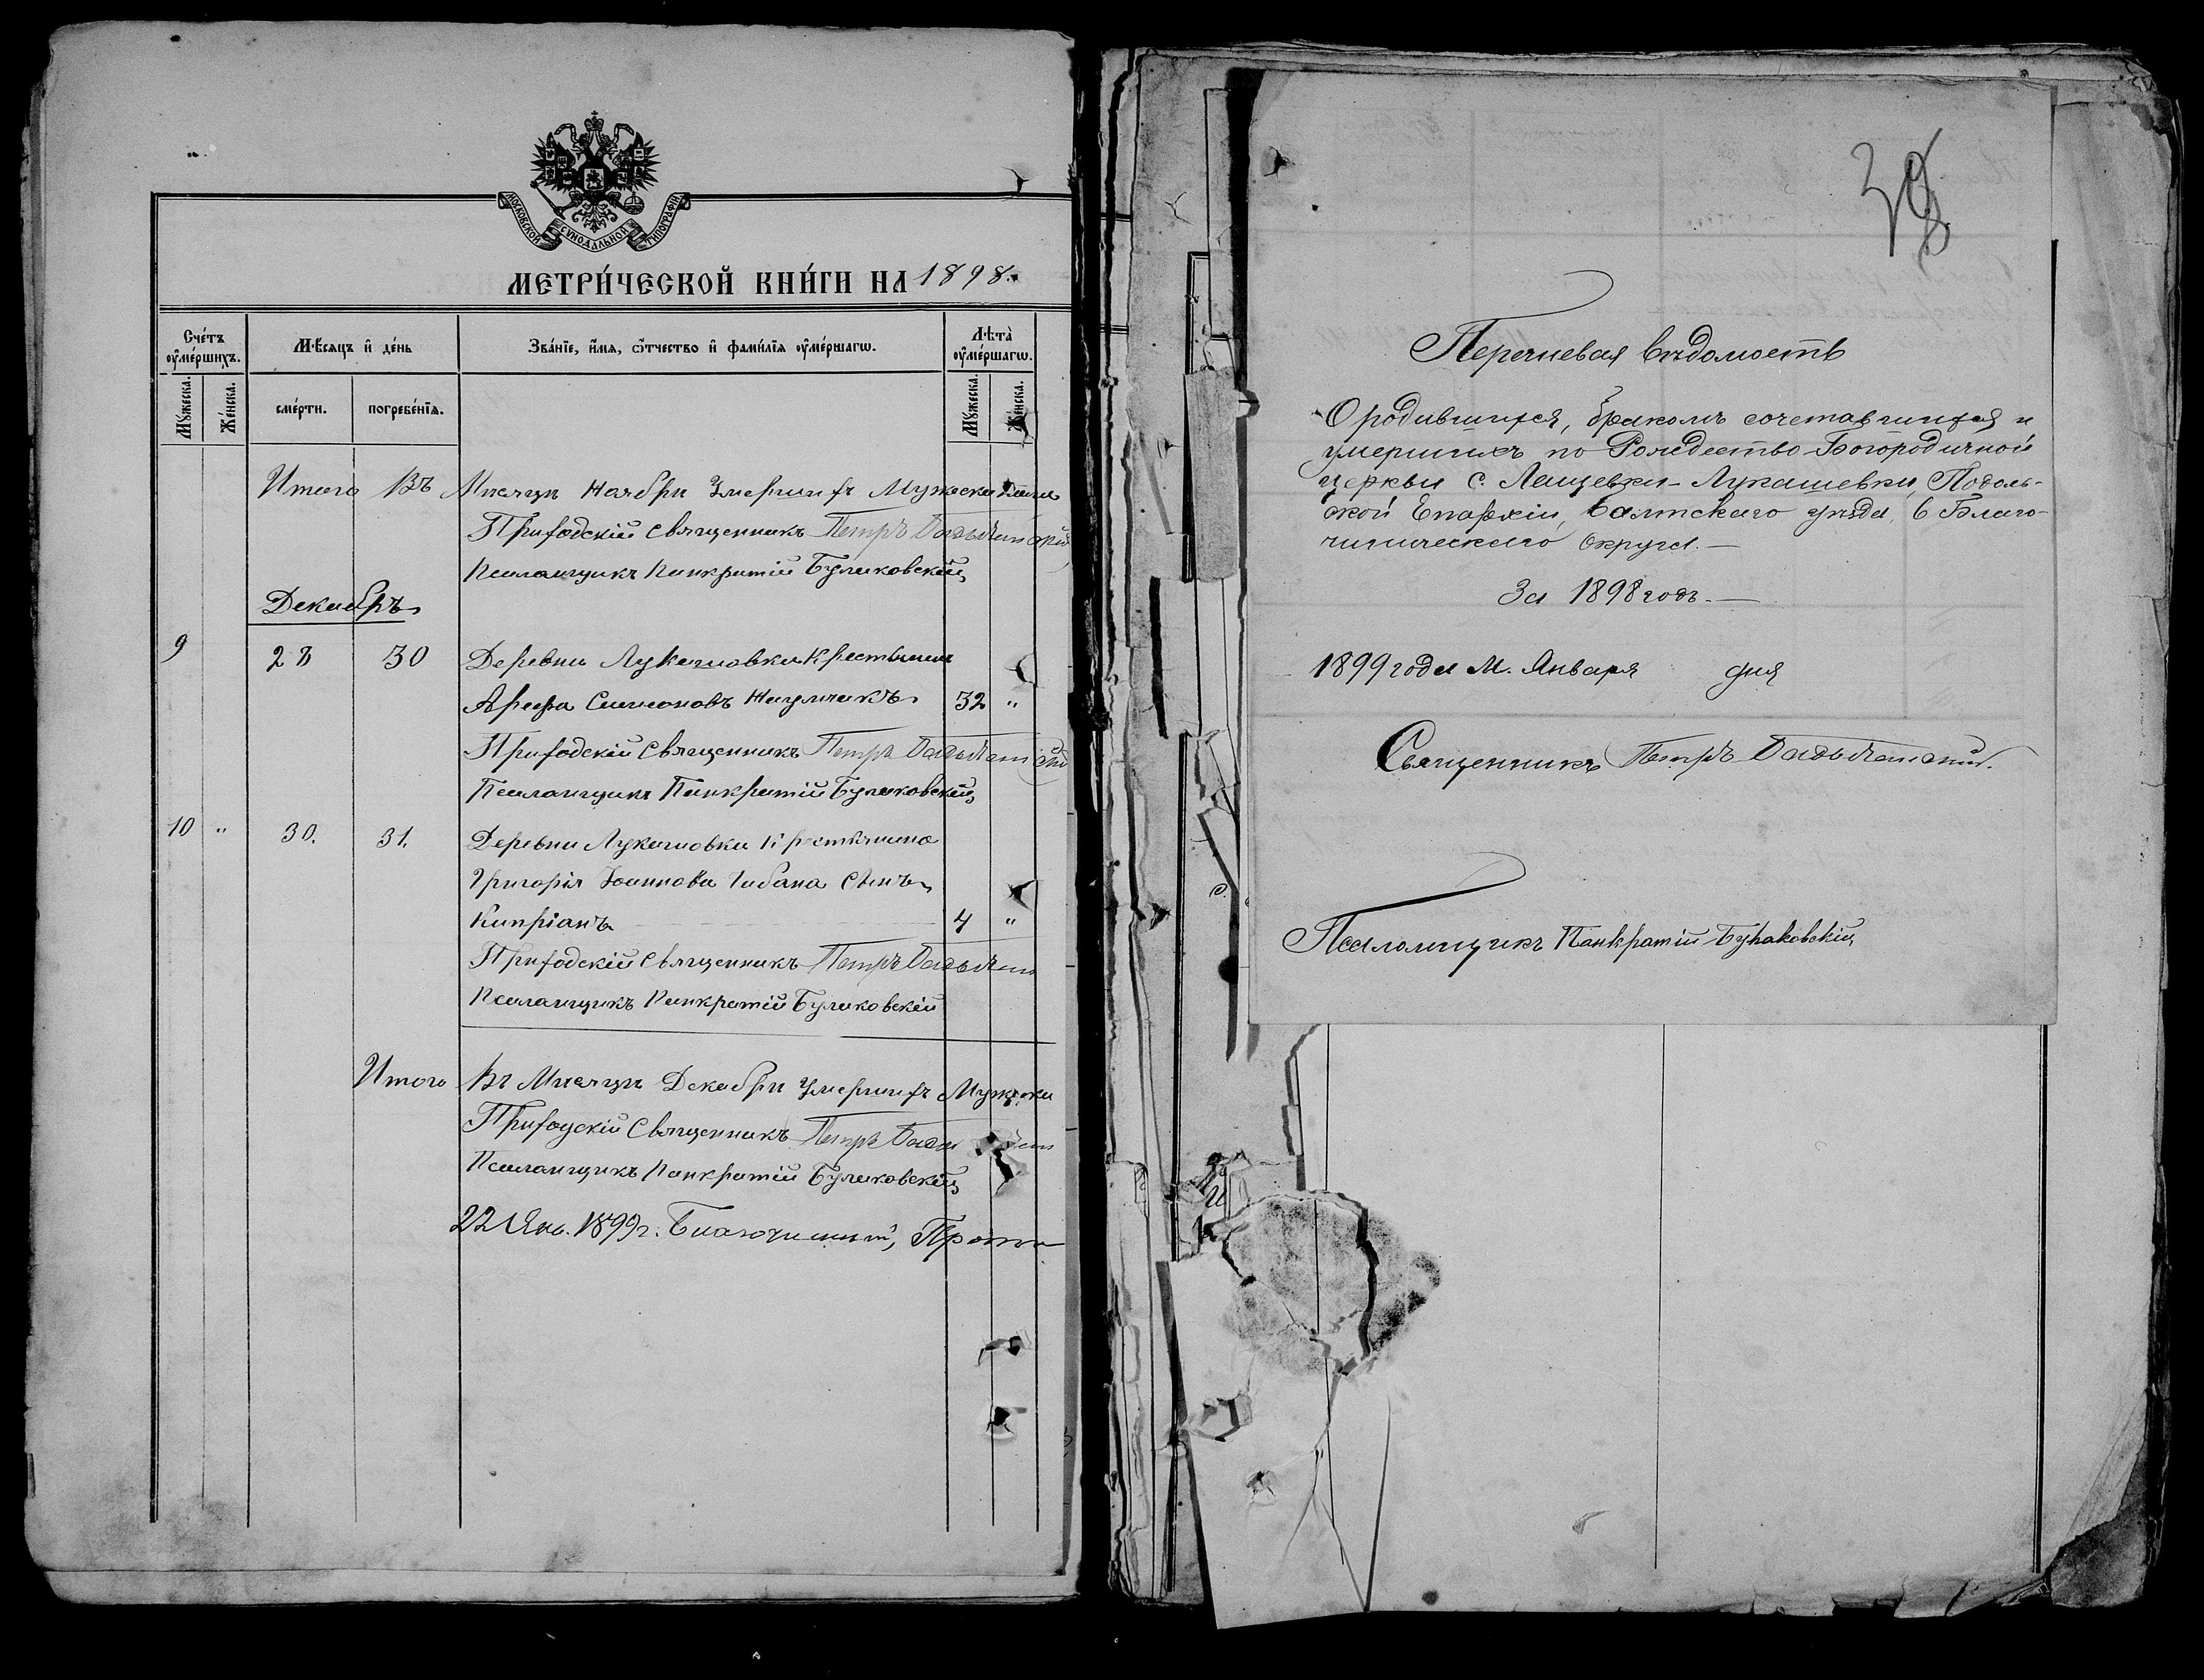 МОСКОВСКОЙ СѴНОДАЛЬНОЙ ТИПОГРАФІИ
МЕТРИ́ЧЕСКОЙ КНИ́ГИ НА 1898.
Сче́тъ ᲂу҆ме́ршихъ.
Мꙋ́жеска.
Же́нска.
Мѣ́сяцъ и҆ де́нь
сме́рти.
погребе́нїѧ.
Зва́нїе, и҆́мѧ, ѻ҆́тчество и҆ фами́лїѧ ᲂу҆ме́ршагѡ.
Лѣта̀ ᲂу҆ме́ршагѡ.
Мꙋ́жеска.
Же́нска.
Итого Въ Мѣсяцѣ Ноябрѣ Умершихъ Мужеска
Приходскій Священникъ Петръ
Псаломщикъ Панкратій Буяковскій
Декабрь
9 28 30 Деревни Лукашовки Крестьянин
Арефа Симеоновъ 32 "
Приходскій Священникъ Петръ
Псаломщикъ Панкратій Буяковскій
10 " 30. 31. Деревни Лукашовки Крестьянина
Григорія Іоаннова Габана Сынъ
Кипріанъ 4 "
Приходскій Священникъ Петръ
Псаломщикъ Панкратій Буяковскій
Итого Въ Мѣсяцѣ Декабрѣ Умершихъ Мужеска
Приходскій Священникъ Петръ
Псаломщикъ Панкратій Буяковскій
22 Янв. 1899 г. Благочинный, Прото
Перечневая вѣдомость
О родившихся, бракомъ сочетавшихся и
умершихъ по Рождество-Богородичной
церкви с. Лащевки-Лукашевки, Подоль-
ской Епархіи, Балтскаго уѣзда, 6 Благо-
чинническаго Округа. —
За 1898 годъ. —
1899 года М. Января дня
Священникъ Петръ
Псаломщикъ Панкратій Буяковскій